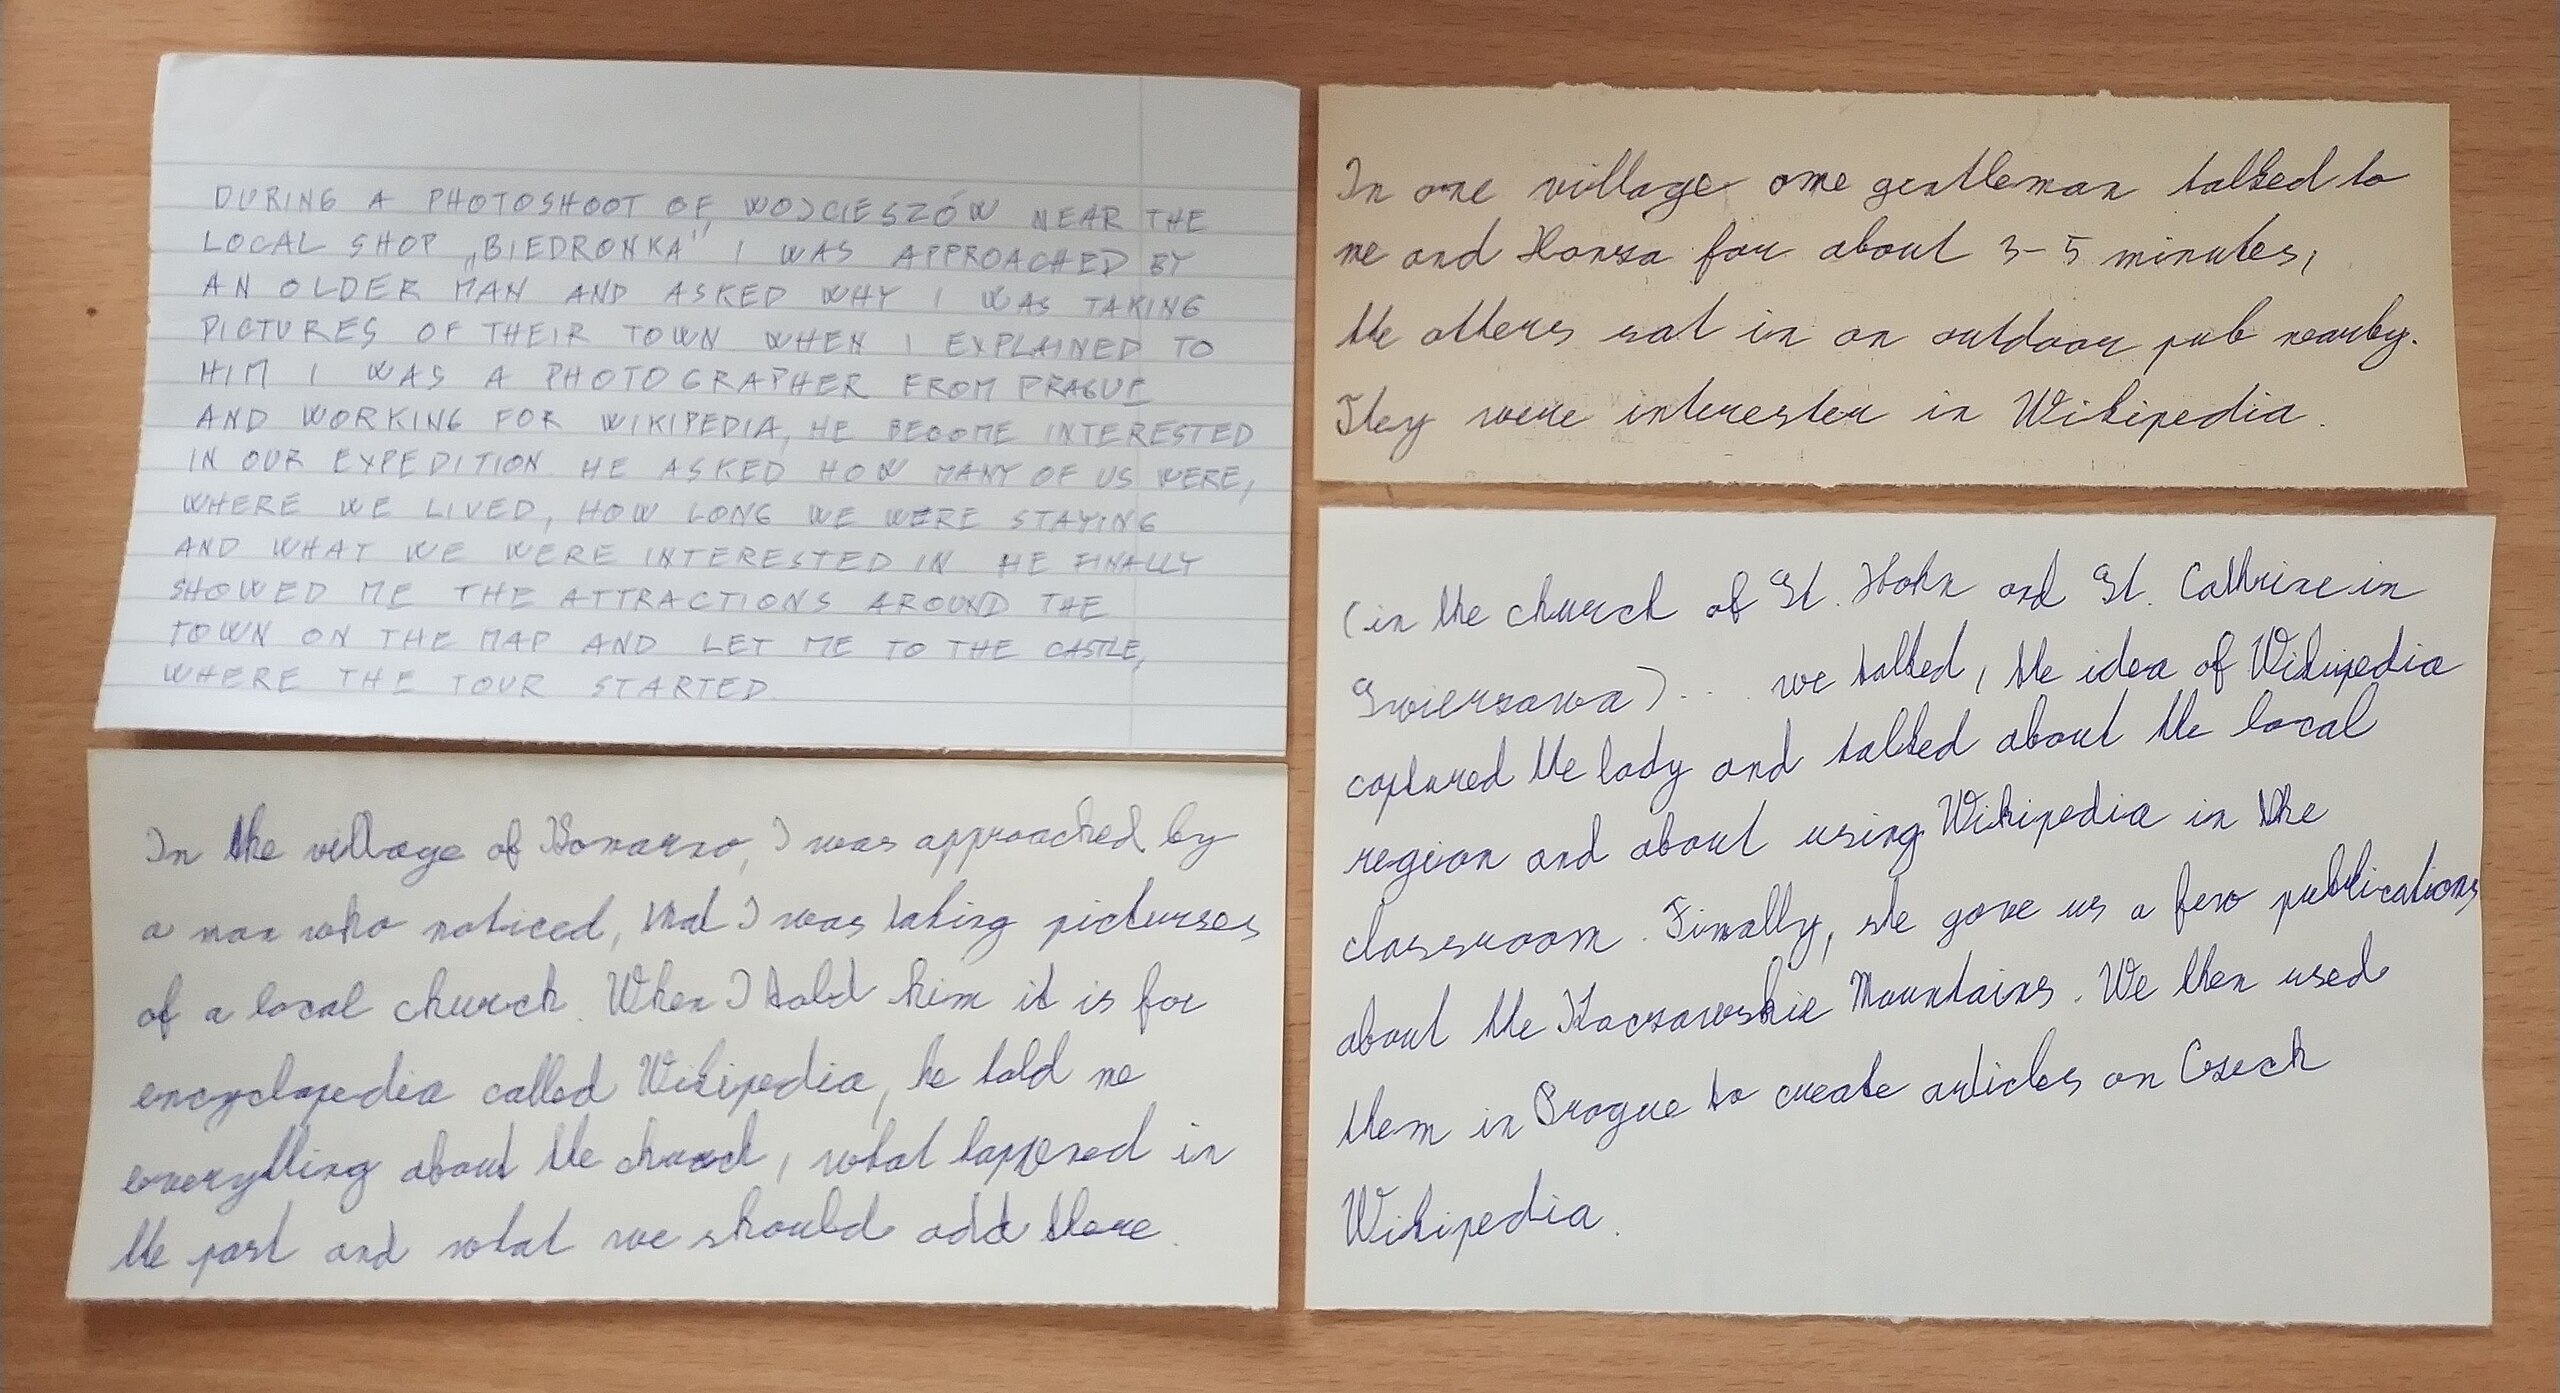 DURING A PHOTOSHOOT OF WOJCIESZÓW NEAR THE
LOCAL SHOP „BIEDRONKA" I WAS APPROACHED BY
AN OLDER MAN AND ASKED WHY I WAS TAKING
PICTURES OF THEIR TOWN WHEN I EXPLAINED TO
HIM I WAS A PHOTOGRAPHER FROM PRAGUE
AND WORKING FOR WIKIPEDIA, HE BECOME INTERESTED
IN OUR EXPEDITION HE ASKED HOW MANY OF US WERE,
WHERE WE LIVED, HOW LONG WE WERE STAYING
AND WHAT WE WERE INTERESTED IN HE FINALLY
SHOWED ME THE ATTRACTIONS AROUND THE
TOWN ON THE MAP AND LET ME TO THE CASTLE,
WHERE THE TOUR STARTED.
In the village of I was approached by
a man who noticed, that I was taking picturses
of a local church. When I told him it is for
encyclopedia called Wikipedia, he told me
everything about the church, what happened in
the past and what we should add there.
In one village ome gentleman talked to
me and Honza for about 3-5 minutes,
the others sat in an outdoor pub nearby.
They were interester in Wikipedia.
(in the church of St. and St. Cathrine in
Swierzawa)... we talked, the idea of Wikipedia
captured the lady and talked about the local
region and about using Wikipedia in the
classroom. Finally, she gave us a few publications
about the Kaczawskie Mountains. We then used
them in Prague to create articles on Czech
Wikipedia.